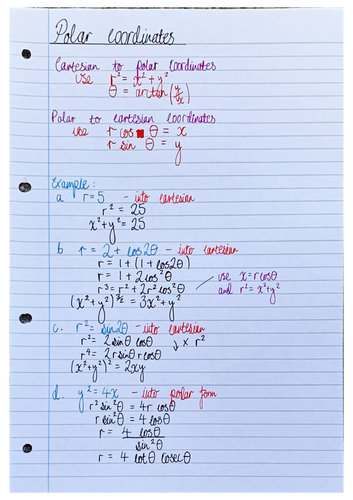 Polar coordinates
Cartesian to polar coordinates
use r² = x² + y²
θ = arctan (y/x)
Polar to cartesian coordinates
use r cos θ = x
r sin θ = y
Example:
a r = 5 - into cartesian
r² = 25
x² + y² = 25
b r = 2 + cos2θ - into cartesian
r = 1 + (1 + cos2θ)
r = 1 + 2cos²θ
r³ = r² + 2r²cos²θ
(x² + y²)^3/2 = 3x² + y²
use x = rcosθ
and r² = x² + y²
c. r² = sin2θ - into cartesian
r² = 2sinθ cosθ
↓ × r²
r⁴ = 2rsinθ rcosθ
(x² + y²)² = 2xy
d. y² = 4x - into polar form
r² sin²θ = 4r cosθ
r sin²θ = 4 cosθ
r = 4 cosθ
sin²θ
r = 4 cotθ cosecθ